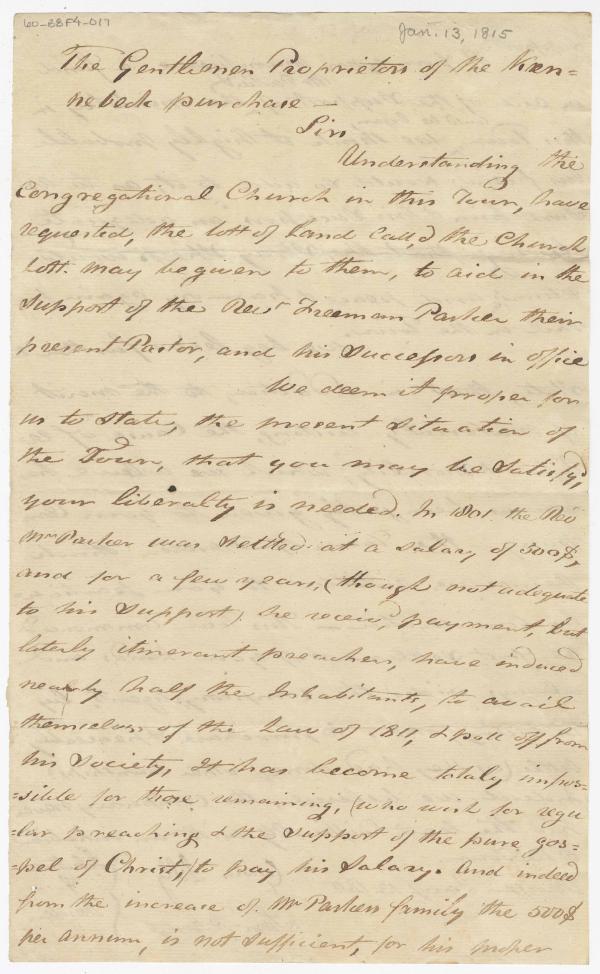 60-88F4-017
Jan. 13, 1815
The Gentlemen Proprietors of the Ken=
nebeck purchase —
Sirs
Understanding the
Congregational Church in this Town, have
requested, the lott of land Call,d the Church
lott. may be given to them, to aid in the
Support of the Revr Freeman Parker their
present Pastor, and his Successors in office
We deem it proper for
us to State, the present Situation of
the Town, that you may be Satisfy,d
your liberality is needed. In 1801. the Rev
Mr Parker was Settled. at a Salary of 300$,
and for a few years, (though not adequate
to his Support) he receiv,d payment, but
laterly itinerant preachers, have induced
nearly half the Inhabitants, to avail
themselves of the Law of 1811, & poll off from
his Society, It has become totaly impos=
=sible for those remaining, (who wish for regu
=lar preaching & the Support of the pure gos=
=pel of Christ,) to pay his Salary. And indeed
from the increase of Mr Parkers family the 300$
per annum, is not Sufficient, for his proper